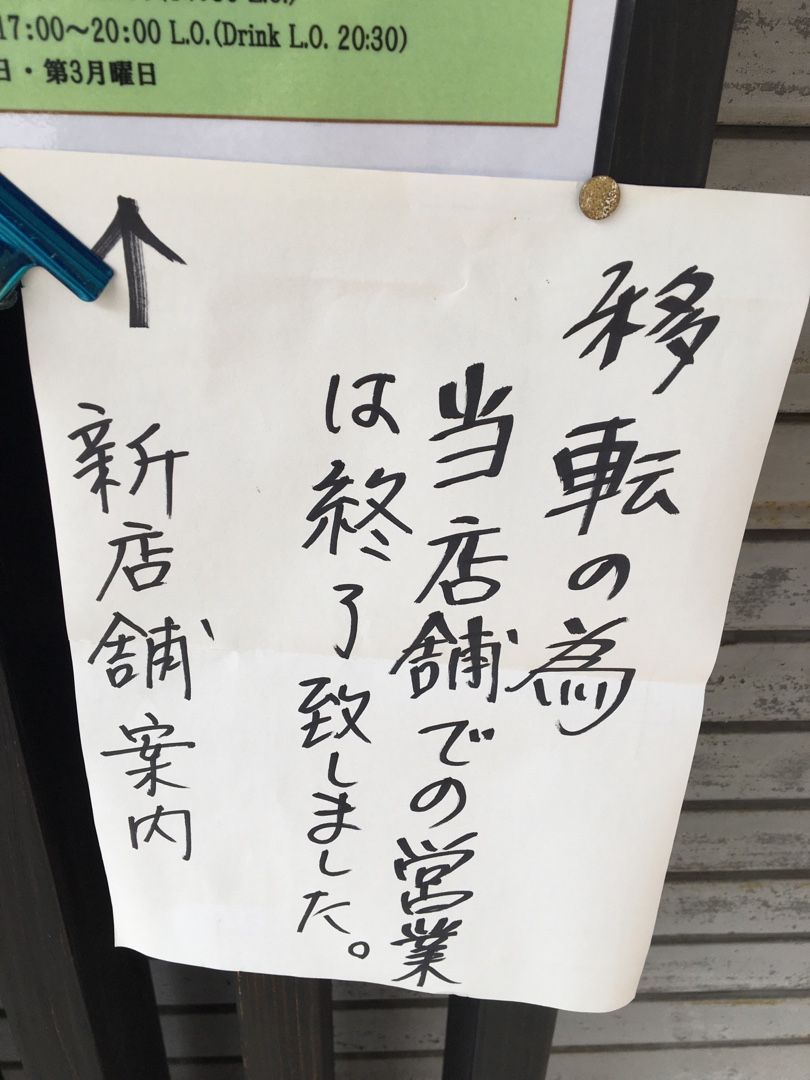 17:00～20:00 L.O.(Drink L.O. 20:30)
日・第3月曜日
移転の為
当店舗での営業
は終了致しました。
↑ 新店舗案内